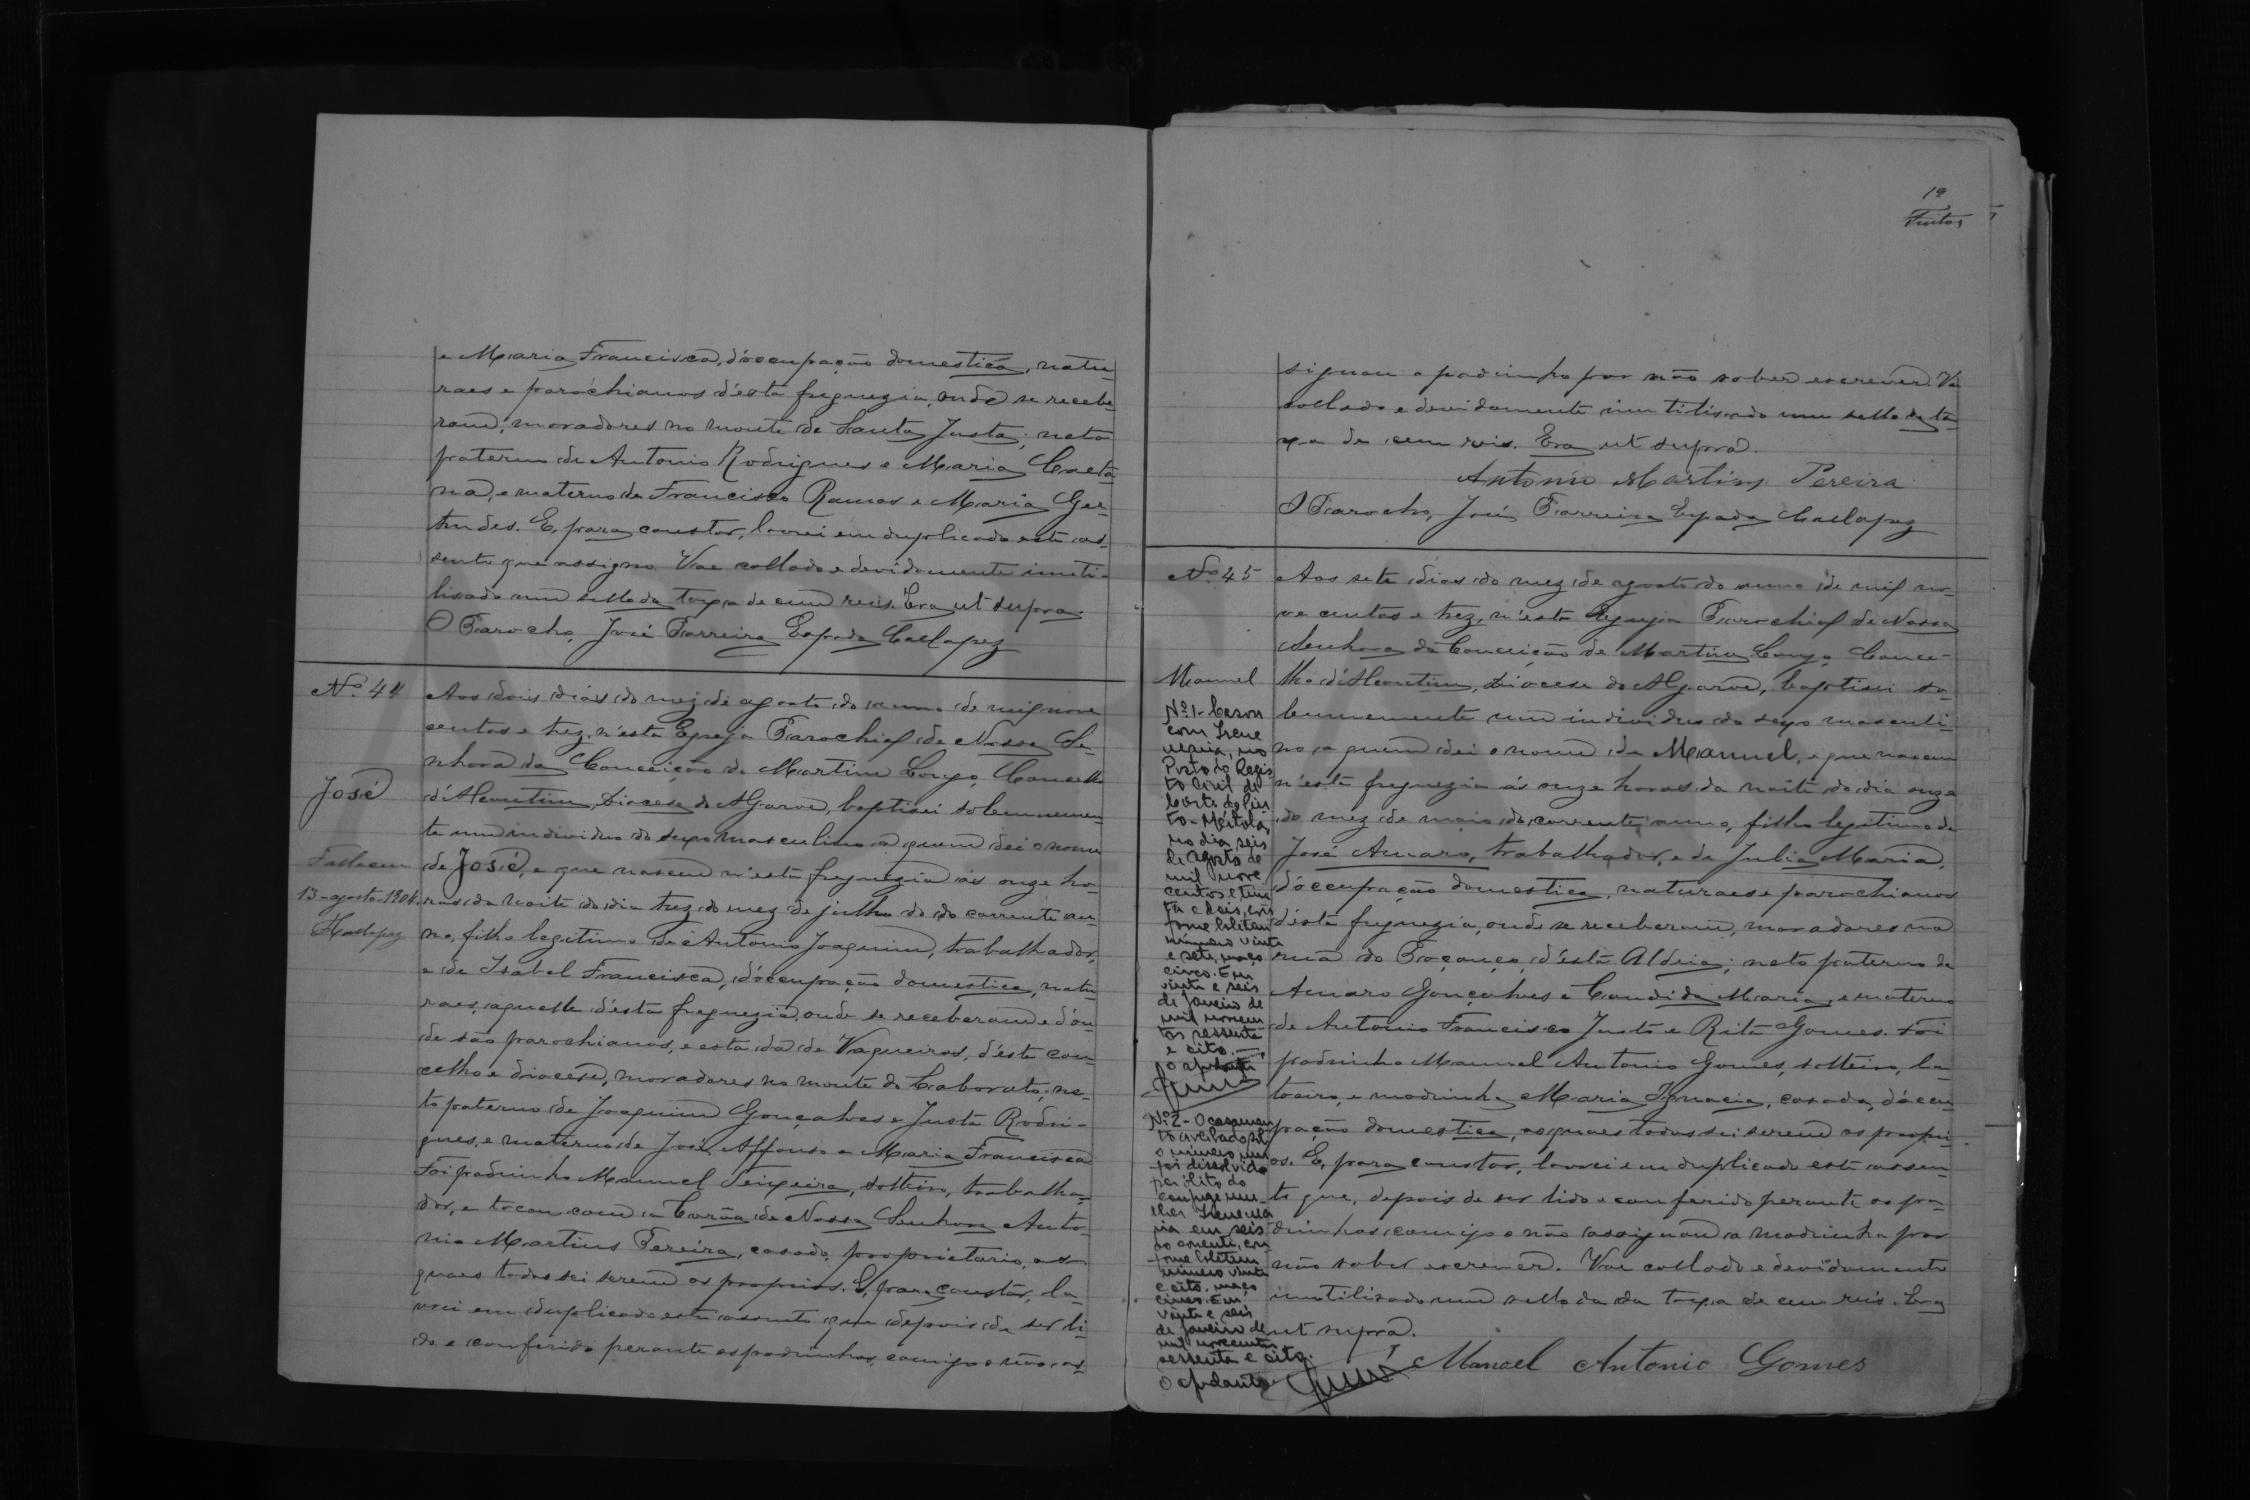 e Maria Francisca, d'occupação domestica, natu-
raes e parochianos d'esta freguezia, onde se recebe-
ram, moradores no monte de Santa Justa; neto
paterno de Antonio Rodrigues e Maria Caeta-
na, e materno de Francisco Ramos e Maria Ger-
trudes. E, para constar, lavrei em duplicado este as-
sento que assigno. Vae collado e devidamente inuti-
lisado um sello da taxa de cem reis. Era ut supra.
O Parocho, José Parreira Espada Callapez
Nº 44
José
Falleceu
13-agosto-1904
Callapez
Aos dois dias do mez de agosto do anno de mil nove
centos e trez, n'esta Egreja Parochial de Nossa Se-
nhora da Conceição de Martim Longo, Concelho
d'Alcoutim, Diocese do Algarve, baptisei solemnemen-
te um individuo do sexo masculino a quem dei o nome
de José, e que nasceu n'esta freguezia ás onze ho-
ras da noite do dia trez do mez de julho do do corrente an-
no, filho legitimo de Antonio Joaquim, trabalhador,
e de Isabel Francisca, d'occupação domestica, natu-
raes, aquelle d'esta freguezia, onde se receberam e d'on-
de são parochianos, e esta da de Vaqueiros, d'este con-
celho e diocese, moradores no monte do Laborato; ne-
to paterno de Joaquim Gonçalves e Justa Rodri-
gues, e materno de José Affonso e Maria Francisca.
Foi padrinho Manuel Teixeira, solteiro, trabalha-
dor, e tocou com a Corôa de Nossa Senhora Anto-
nio Martins Pereira, casado, proprietario, os
quaes todos sei serem os proprios. E, para constar, la-
vrei em duplicado este assento que depois de ser li-
do e conferido perante os padrinhos, comigo o não as-
19
signou o padrinho por não saber escrever. Va
collado e devidamente inutilisado um sello da ta-
xa de cem reis. Era ut supra.
Antonio Martins Pereira
O Parocho, José Parreira Espada Callapez
Nº 45
Manuel
Nº 1 - Casou
com Irene
Maria, no
Posto do Regis
to Civil de
Corte do Pin
to - Mértola,
no dia seis
de agosto de
mil nove
centos e trin
ta e dois, con
forme boletim
número vinte
e sete, maço
cinco. Em
vinte e seis
de Janeiro de
mil novecen
tos sessenta
e oito.
O ajudante
Nº 2 - O casamen
to averbado sob
o número um
foi dissolvido
por óbito do
conjuge mu-
lher Irene Ma
ria em seis
do corrente, con
forme boletim
número vinte
e oito, maço
cinco. Em
vinte e seis
de Janeiro de
mil novecentos
sessenta e oito.
O ajudante
Aos sete dias do mez de agosto do anno de mil no-
ve centos e trez, n'esta Egreja Parochial de Nossa
Senhora da Conceição de Martim Longo, Conce-
lho d'Alcoutim, Diocese do Algarve, baptisei so-
lemnemente um individuo do sexo masculi-
no, a quem dei o nome de Manuel, e que nasceu
n'esta freguezia ás onze horas da noite do dia onze
do mez de maio do corrente anno, filho legitimo de
José Amaro, trabalhador, e de Julia Maria,
d'occupação domestica, naturaes e parochianos
d'esta freguezia, onde se receberam, moradores na
rua do Poçanço, d'esta Aldeia; neto paterno de
Amaro Gonçalves e Candida Maria, e materno
de Antonio Francisco Justo e Rita Gomes. Foi
padrinho Manuel Antonio Gomes, solteiro, la-
toeiro, e madrinha Maria Ignacia, casada, d'occu-
pação domestica, os quaes todos sei serem os propri-
os. E, para constar, lavrei em duplicado este assen-
to que, depois de ser lido e conferido perante os pa-
drinhos, comigo o não assignou a madrinha por
não saber escrever. Vae collado e devidamente
inutilisado um sello da da taxa de cem reis. Era
ut supra.
Manoel Antonio Gomes